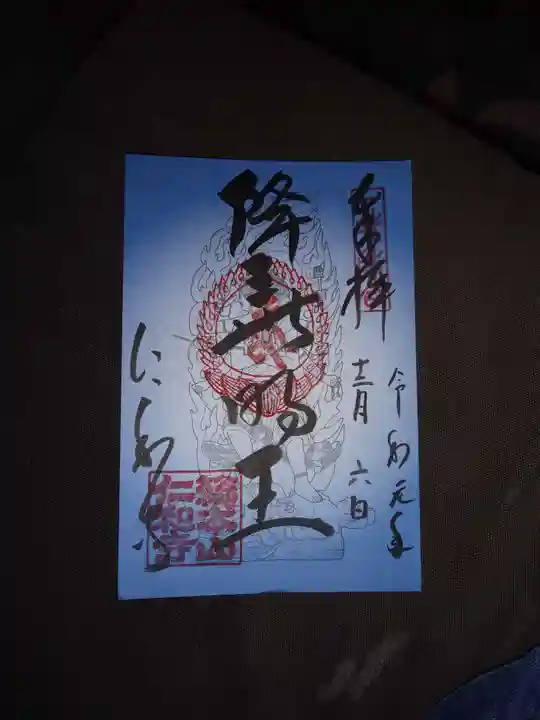 奉拝
令和元年
十二月六日
降三世明王
仁和寺
総本山
仁和寺